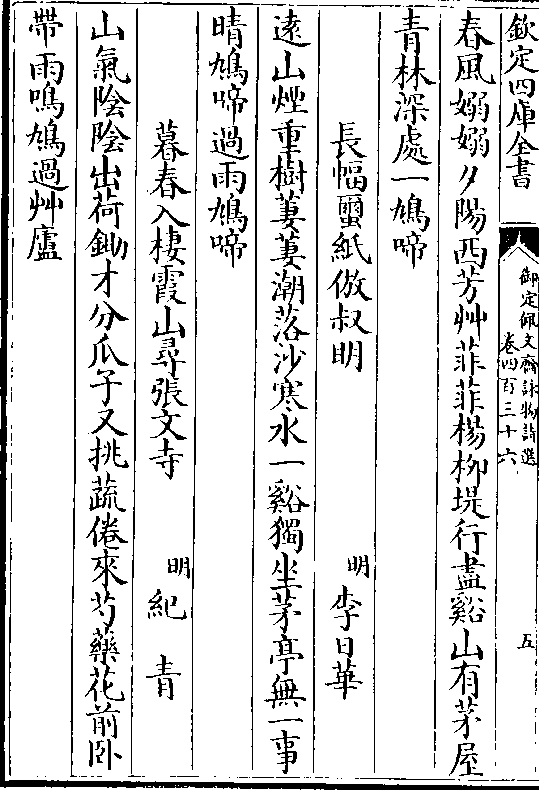 欽定四庫全書
御定佩文齋詠物詩選
卷四百三十六
五
春風嫋嫋夕陽西芳艸菲菲楊柳堤行盡谿山有茅屋
青林深處一鳩啼
長幅蠒紙倣叔明
明
李日華
遠山煙重樹萋萋潮落沙寒水一谿獨坐茅亭無一事
晴鳩啼過雨鳩啼
暮春入棲霞山尋張文寺
明
紀青
山氣陰陰出荷鋤才分瓜子又挑蔬倦來芍藥花前卧
帶雨鳴鳩過艸廬